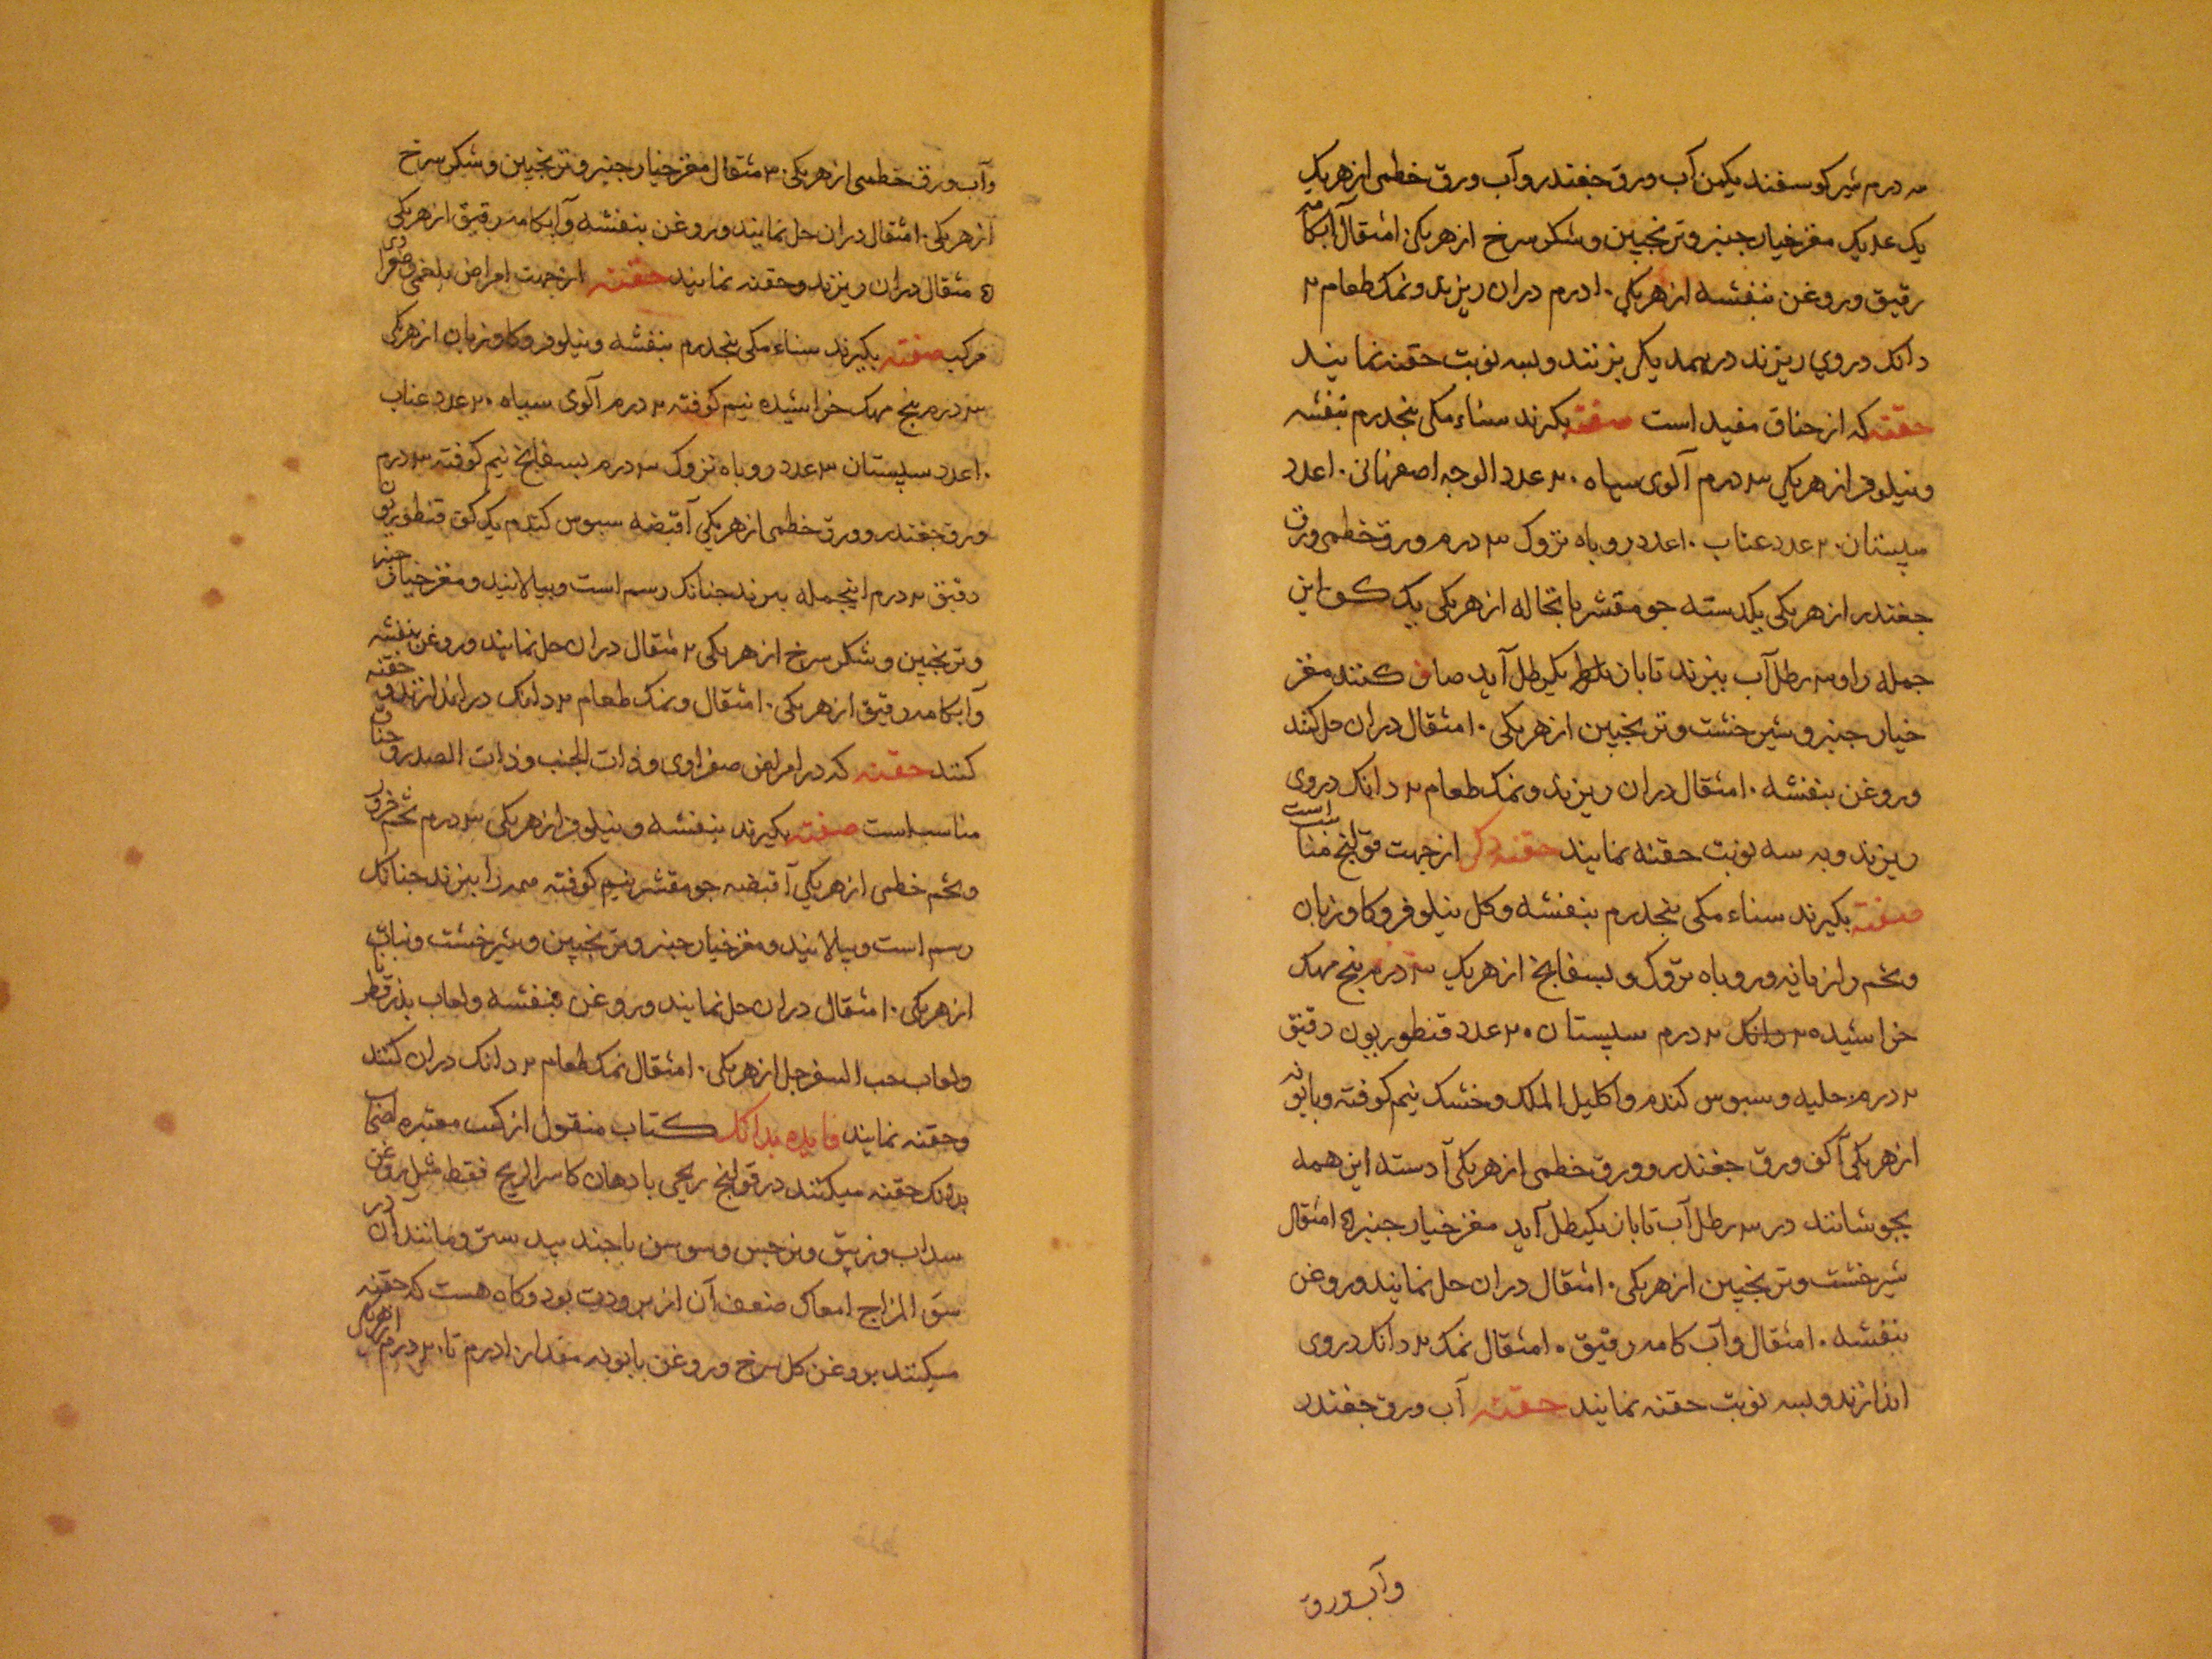 ۳ درم شیر کوسفند یکمن آب ورق جغندر و آب ورق خطمی از هریک
یک عدیک مغز خیار جنبر و ترنجبین و شکر سرخ از هریکی ۱۰ مثقال آبکامه
رقیق و روغن بنفشه از هریکی ۱۰ درم دران ریزند و نمک طعام ۲
دانک در وی ریزند درهمدیکر بزنند و بسه نوبت حقنه نمایند
حقنه که از خناق مفید است صفته بکیرند سناء مکی پنجدرم بنفشه
و نیلوفر از هریکی ۳ درم آلوی سیاه ۲۰ عدد الوجه اصفهانی ۱۰ عدد
سپستان ۲۰ عدد عناب ۱۰ عدد روباه تزوک ۳ درم ورق خطمی ورق
جغندر از هریکی یکدسته جو مقشر با نخاله از هریکی یک کف این
جمله را و ۳ رطل آب بپزند تا بان یکرطل آید صاف کنند مغز
خیار جنبر و شیر خشت و ترنجبین از هریکی ۱۰ مثقال دران حل کنند
و روغن بنفشه ۱۰ مثقال دران ریزند و نمک طعام ۲ دانک در وی
ریزند و به سه نوبت حقنه نمایند حقنه دکر از جهت قولنج مناسب است
صفته بکیرند سناء مکی پنجدرم بنفشه و کل نیلوفر و کاوزبان
و تخم رازیانه و روباه تزوک و بسفایج از هریک ۳ درم بیخ مهک
خراشیده ۲ دانک ۲ درم سپستان ۲۰ عدد قنطوریون دقیق
۲ درم حلبه و سبوس کندم و اکلیل الملک و خشک نیم کوفته و بابونه
از هریکی آ کف ورق جغندر و ورق خطمی از هریکی آ دسته این همه
بجوشانند در ۳ رطل آب تا بان یکرطل آید مغز خیار جنبر ۱۵ مثقال
شیر خشت و ترنجبین از هریکی ۱۰ مثقال دران حل نمایند و روغن
بنفشه ۱۰ مثقال و آب کامه رقیق ۱۰ مثقال نمک ۲ دانک در وی
اندازند و بسه نوبت حقنه نمایند حقنه آب ورق جغندر
وآب ورق
وآب ورق خطمی از هریکی ۳۰ مثقال مغز خیار جنبر و ترنجبین و شکر سرخ
از هریکی ۱۰ مثقال دران حل نمایند و روغن بنفشه و آبکامه رقیق از هریکی
۵ مثقال دران ریزند و حقنه نمایند حقنه از جهت امراض بلغمی و صفراوی
مرکب صفته بکیرند سناء مکی پنجدرم بنفشه و نیلوفر و کاوزبان از هریکی
۳ درم بیخ مهک خراشیده نیم کوفته ۲ درم آلوی سیاه ۲۰ عدد عناب
۱۰ عدد سپستان ۳ عدد روباه تزوک ۳ درم بسفایج نیم کوفته ۳ درم
ورق جغندر و ورق خطمی از هریکی آ قبضه سبوس کندم یک کف قنطوریون
دقیق ۲ درم اینجمله بپزند جنانک رسم است و بپالایند و مغز خیار جنبر
و ترنجبین و شکر سرخ از هریکی ۲ مثقال دران حل نمایند و روغن بنفشه
و آبکامه رقیق از هریکی ۱۰ مثقال و نمک طعام ۲ دانک در اندازند و حقنه
کنند حقنه که در امراض صفراوی و ذات الجنب و ذات الصدر و خناق
مناسب است صفته بکیرند بنفشه و نیلوفر از هریکی ۳ درم تخم
و تخم خطمی از هریکی آ قبضه جو مقشر نیم کوفته همه را بپزند جنانک
رسم است و بپالایند و مغز خیار جنبر و ترنجبین و شیر خشت و نبات
از هریکی ۱۰ مثقال دران حل نمایند و روغن بنفشه و لعاب بذر قطونا
و لعاب حب السفرجل از هریکی ۱۰ مثقال نمک طعام ۲ دانک دران کنند
و حقنه نمایند فایده بدانک کتاب منقول از کتب معتبره
بدانک حقنه میکنند در قولنج ریحی با دهان کاسر الریح فقط مثل روغن
سداب و زیبق و نرجس و سوسن با جند بیدستر و مانند آن در
سو المزاج امعا که ضعف آن از برودت بود و کاه هست که حقنه
میکنند بروغن کل سرخ و روغن بابونه مقدار ۱۰ درم تا ۲۰ درم از هریکی